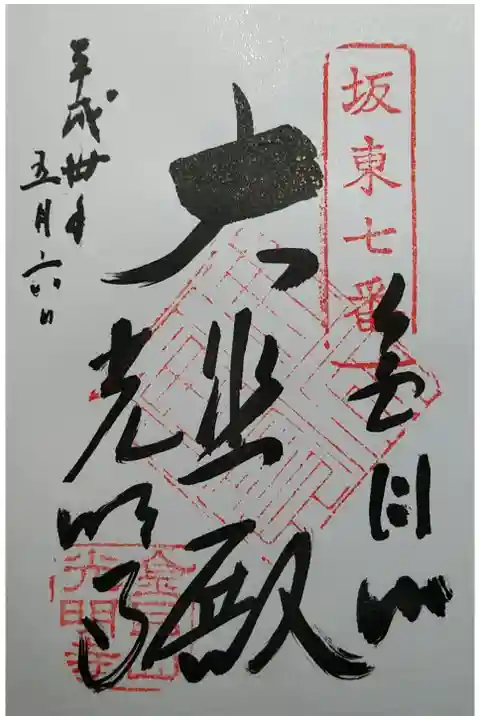 坂東七番
金目山
大悲殿
光明寺
平成卅年
五月六日
金目山
光明寺